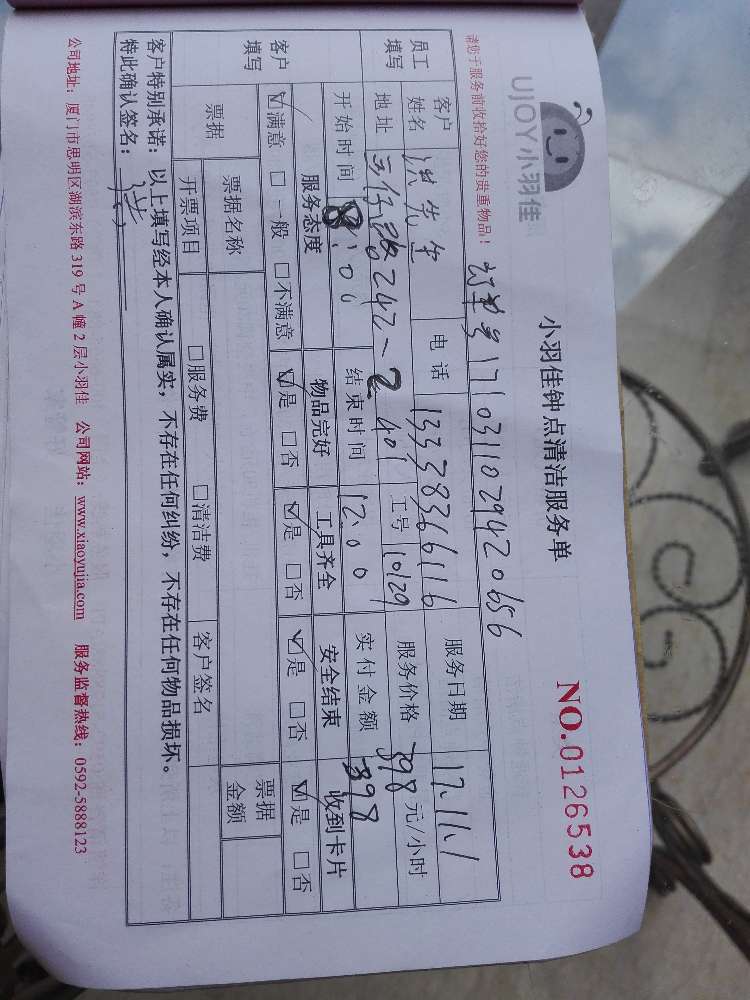 UJOY小羽佳
小羽佳钟点清洁服务单
NO.0126538
请您于服务前收拾好您的贵重物品！
订单号17103110294420656
员工填写 客户姓名 洪先生 电话 13338366116 服务日期 17.11.1
地址 242-2 401 工号 10129 服务价格 398 元/小时
开始时间 8:00 结束时间 12:00 实付金额 398
客户填写 服务态度 物品完好 工具齐全 安全结束 收到卡片
☑满意 □一般 □不满意 ☑是 □否 ☑是 □否 ☑是 □否 ☑是 □否
票据 票据名称 票据金额
开票项目 □服务费 □清洁费 客户签名
客户特别承诺：以上填写经本人确认属实，不存在任何纠纷，不存在任何物品损坏。
特此确认签名：
公司地址：厦门市思明区湖滨东路 319 号 A 幢 2 层小羽佳 公司网站：www.xiaoyujia.com 服务监督热线：0592-5888123